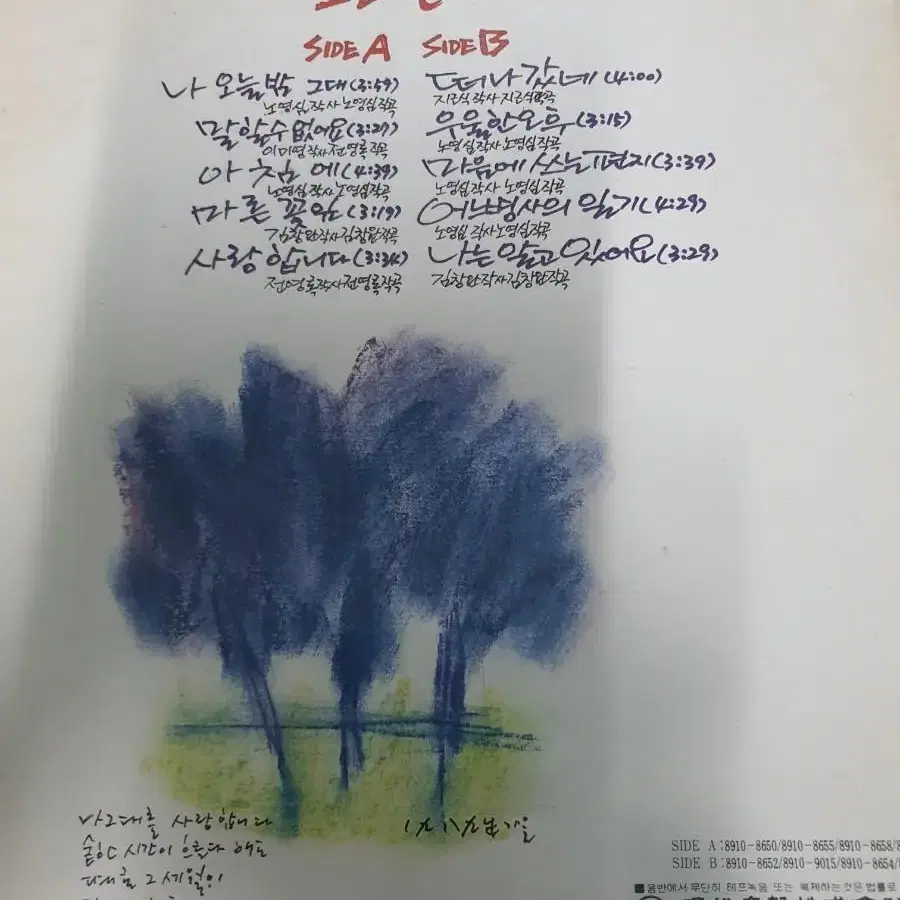 SIDE A
나 오늘밤 그대 (3:59)
노영심 작사 노영심 작곡
말할 수 없어요 (3:27)
이미영 작사 전영록 작곡
아침에 (4:39)
노영심 작사 노영심 작곡
마른 꽃잎 (3:19)
김창완 작사 김창완 작곡
사랑합니다 (3:34)
전영록 작사 전영록 작곡
SIDE B
떠나갔네 (4:00)
지근식 작사 지근식 작곡
우울한 오후 (3:15)
노영심 작사 노영심 작곡
마음에 쓰는 편지 (3:39)
노영심 작사 노영심 작곡
어느 병사의 일기 (4:29)
노영심 작사 노영심 작곡
나는 알고 있어요 (3:29)
김창완 작사 김창완 작곡
나 그대를 사랑합니다
숱한 시간이 흐른다 해도
그 세월이
SIDE A :8910-8650/8910-8655/8910-8658/8
SIDE B :8910-8652/8910-9015/8910-8654/8
■음반에서 무단히 테프녹음 또는 복제하는것은 법률로